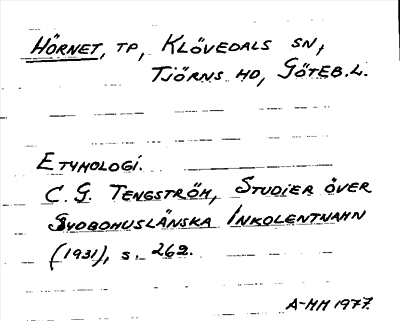 HÖRNET, TP, KLÖVEDALS SN,
TJÖRNS HD, GÖTEB.L.
ETYMOLOGI.
C.G. TENGSTRÖM, STUDIER ÖVER
SYDBOHUSLÄNSKA INKOLENTNAMN
(1931), S. 262.
A-MM 1977.